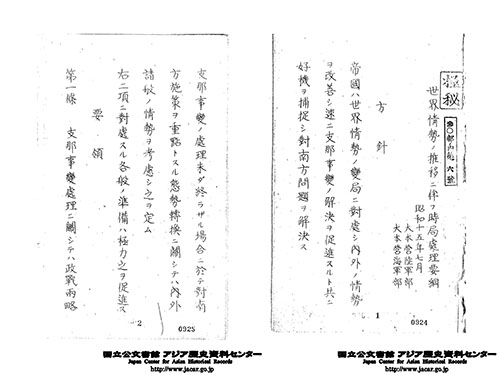 極秘
世界情勢ノ推移ニ伴フ時局處理要綱
昭和十五年七月
大本營陸軍部
大本營海軍部
方針
帝國ハ世界情勢ノ變局ニ對處シ内外ノ情勢
ヲ改善シ速ニ支那事變ノ解決ヲ促進スルト共ニ
好機ヲ捕捉シ對南方問題ヲ解決ス
1
0324
国立公文書館 アジア歴史資料センター
Japan Center for Asian Historical Records
http://www.jacar.go.jp
支那事變ノ處理未ダ終ラザル場合ニ於テ對南
方施策ヲ重點トスル態勢轉換ニ關シテハ内外
諸般ノ情勢ヲ考慮シ之ヲ定ム
右二項ニ對處スル各般ノ準備ハ極力之ヲ促進ス
要領
第一條 支那事變處理ニ關シテハ政戰兩略
2
0325
国立公文書館 アジア歴史資料センター
Japan Center for Asian Historical Records
http://www.jacar.go.jp